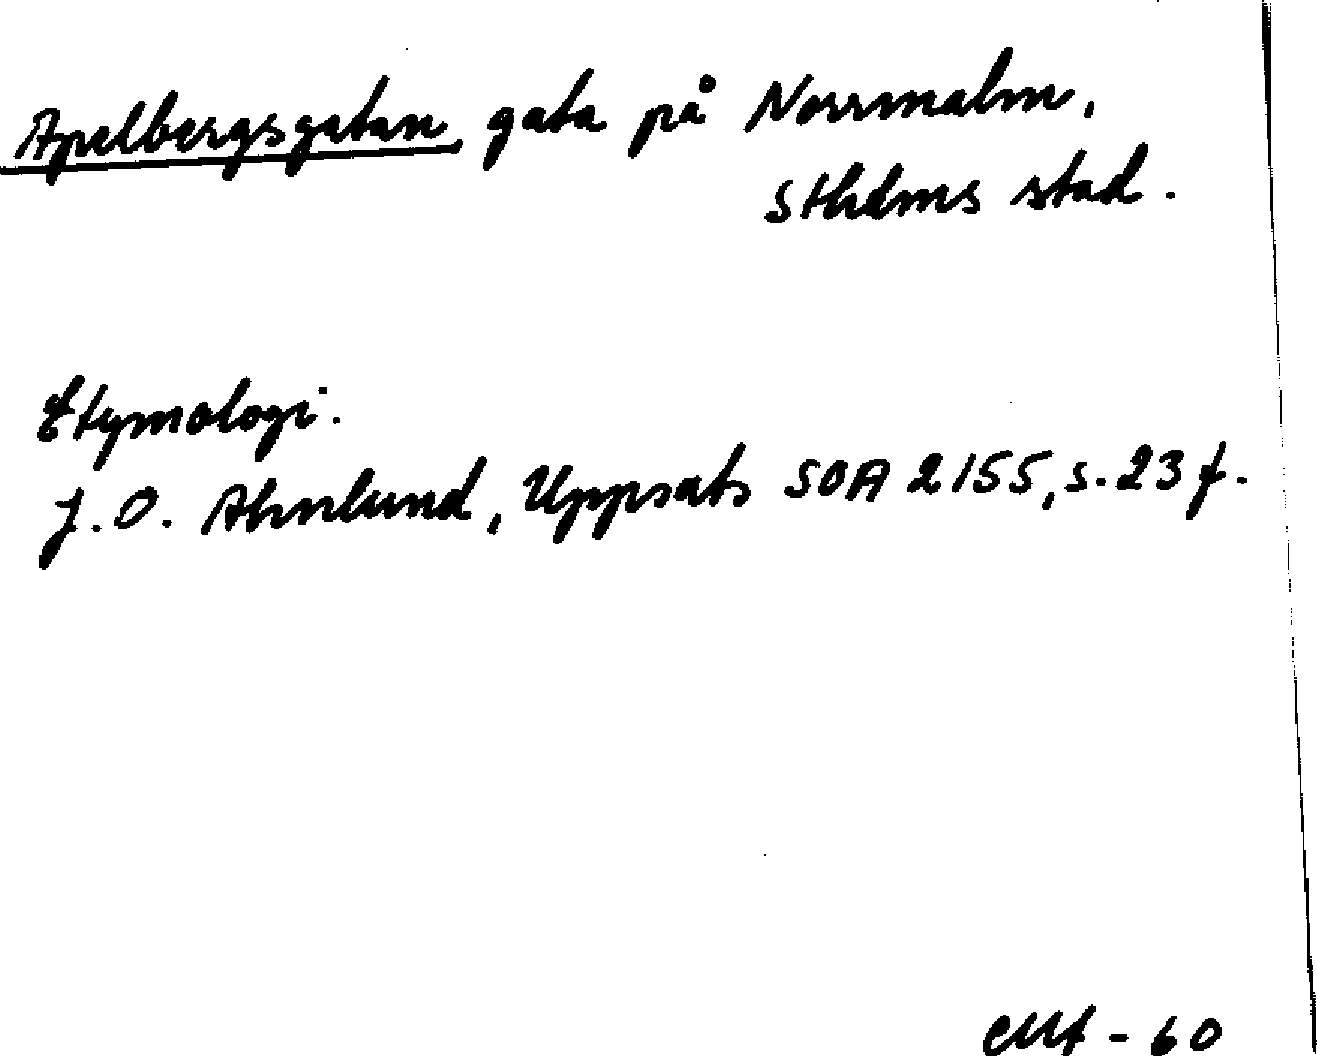 Apelbergsgatan, gata på Norrmalm,
Sthlms stad.
Etymologi.
J.O. Ahnlund, Uppsats SOA 2155, s. 23 f.
- 60